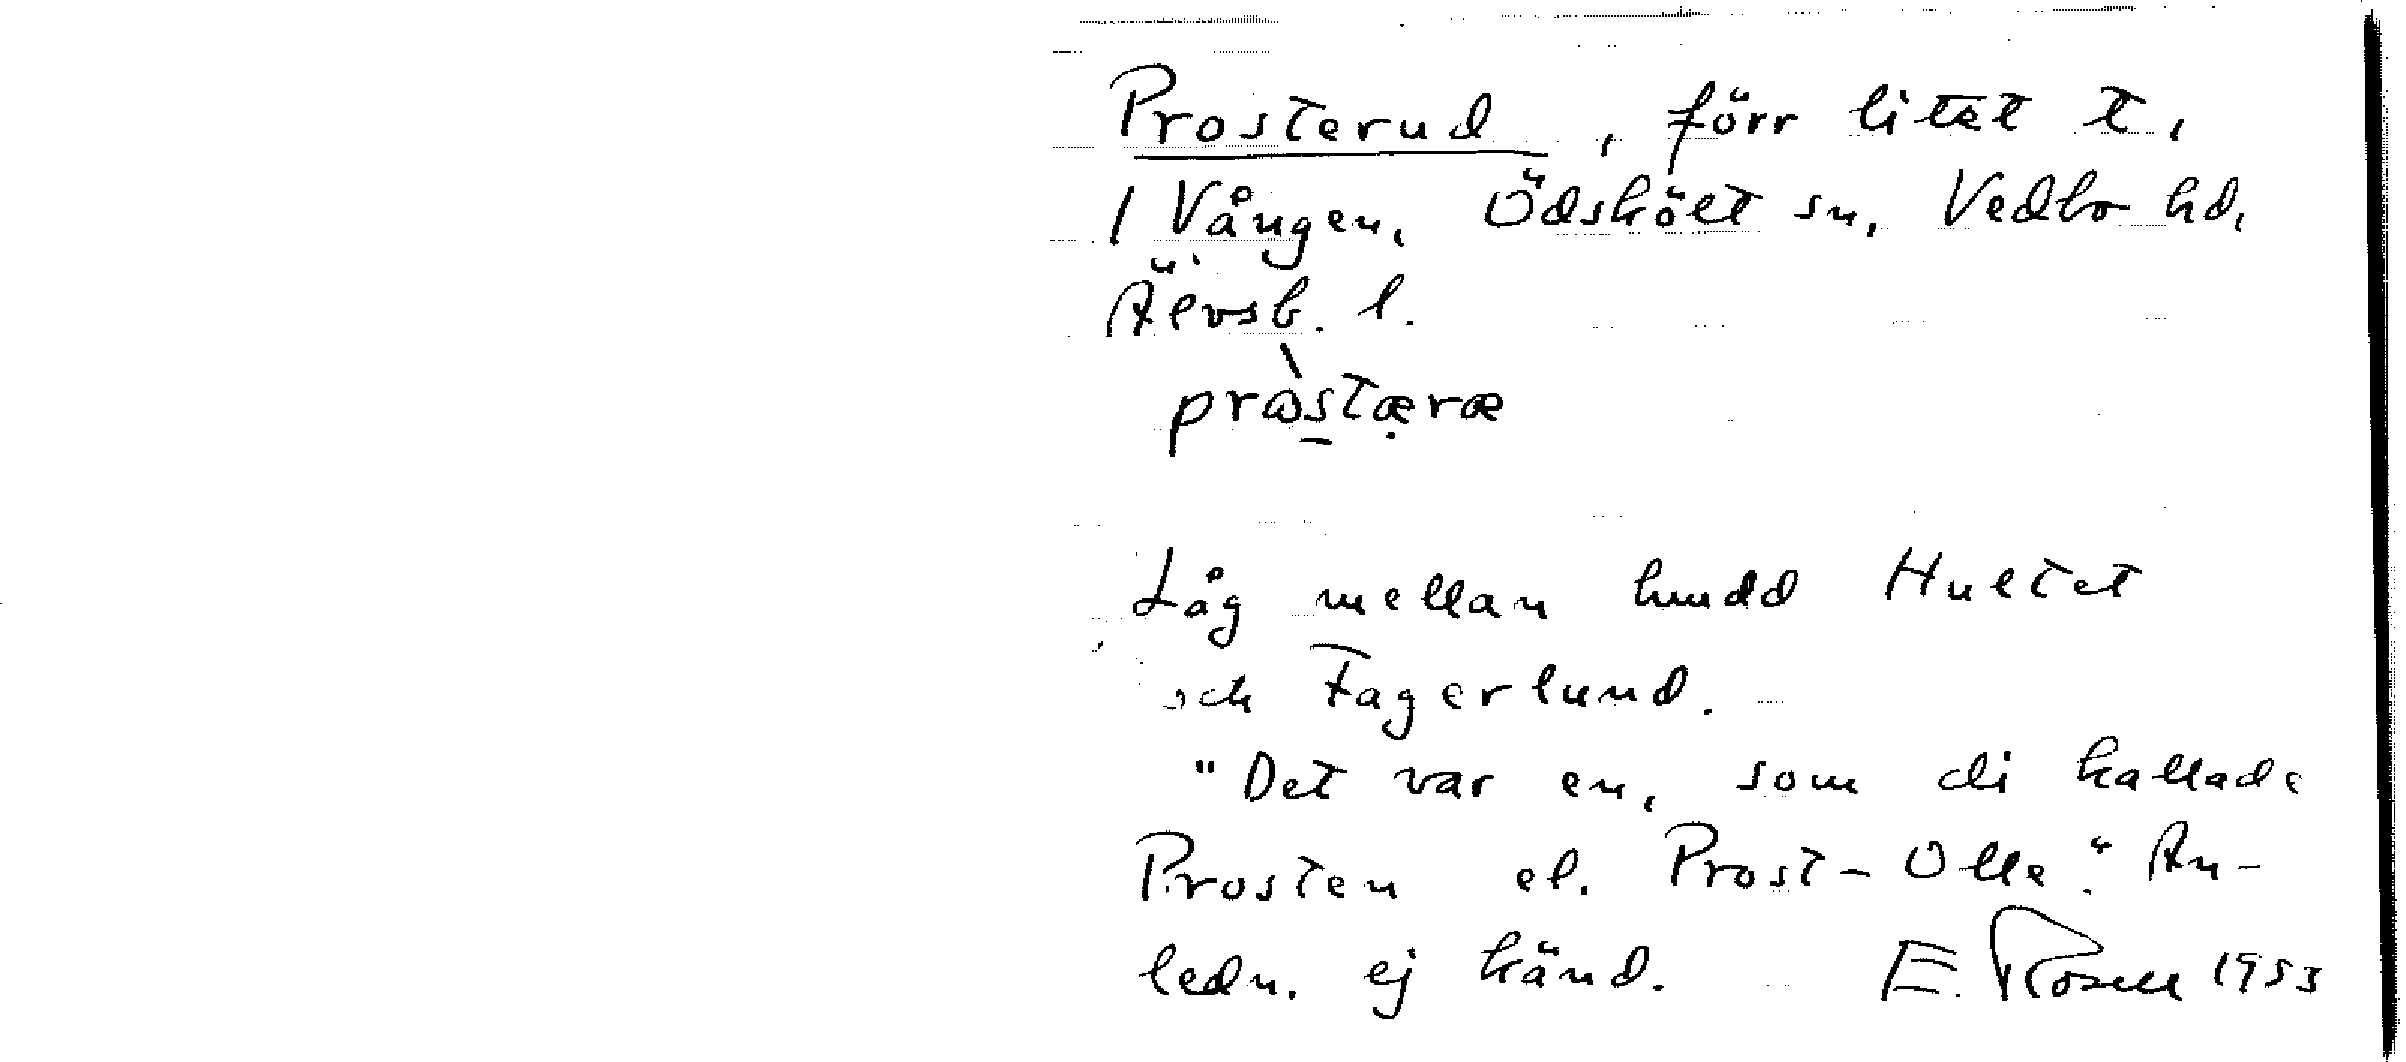 Prosterud, förr litet t.
1 Vången, Ödskölt sn, Vedbo hd,
Älvsb. l.
pròstæræ
Låg mellan hmdd Hultet
och Fagerlund.
"Det var en, som di kallade
Prosten el. Prost-Olle". An-
ledn. ej känd. E. Rosell 1953